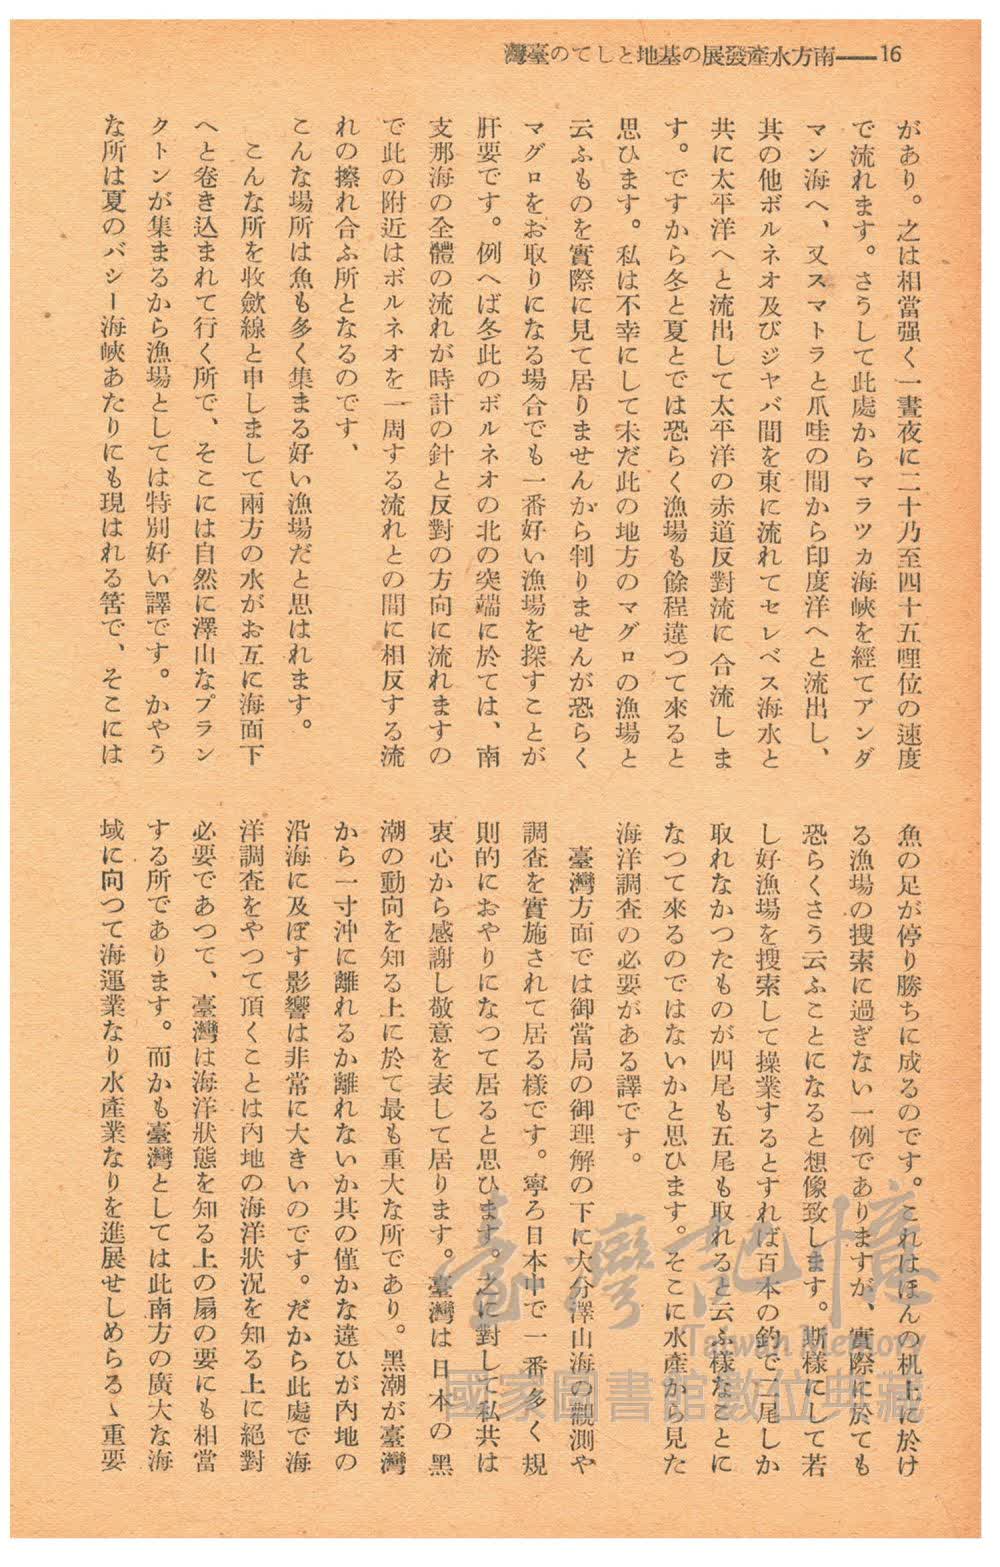 灣臺のてしと地基の展發產水方南――16
があり。之は相當强く一晝夜に二十乃至四十五哩位の速度
で流れます。さうして此處からマラツカ海峽を經てアンダ
マン海へ、又スマトラと爪哇の間から印度洋へと流出し、
其の他ボルネオ及びジヤバ間を東に流れてセレベス海水と
共に太平洋へと流出して太平洋の赤道反對流に合流しま
す。ですから冬と夏とでは恐らく漁場も餘程違つて來ると
思ひます。私は不幸にして未だ此の地方のマグロの漁場と
云ふものを實際に見て居りませんから判りませんが恐らく
マグロをお取りになる場合でも一番好い漁場を探すことが
肝要です。例へば冬此のボルネオの北の突端に於ては、南
支那海の全體の流れが時計の針と反對の方向に流れますの
で此の附近はボルネオを一周する流れとの間に相反する流
れの擦れ合ふ所となるのです、
こんな場所は魚も多く集まる好い漁場だと思はれます。
こんな所を收斂線と申しまして兩方の水がお互に海面下
へと卷き込まれて行く所で、そこには自然に澤山なプラン
クトンが集まるから漁場としては特別好い譯です。かやう
な所は夏のバシー海峽あたりにも現はれる筈で、そこには
魚の足が停り勝ちに成るのです。これはほんの机上に於け
る漁場の搜索に過ぎない一例でありますが、實際に於ても
恐らくさう云ふことになると想像致します。斯樣にして若
し好漁場を搜索して操業するとすれば百本の釣で二尾しか
取れなかつたものが四尾も五尾も取れると云ふ樣なことに
なつて來るのではないかと思ひます。そこに水產から見た
海洋調査の必要がある譯です。
臺灣方面では御當局の御理解の下に大分澤山海の觀測や
調査を實施されて居る樣です。寧ろ日本中で一番多く規
則的におやりになつて居ると思ひます。之に對して私共は
衷心から感謝し敬意を表して居ります。臺灣は日本の黑
潮の動向を知る上に於て最も重大な所であり。黑潮が臺灣
から一寸沖に離れるか離れないか其の僅かな違ひが內地の
沿海に及ぼす影響は非常に大きいのです。だから此處で海
洋調査をやつて頂くことは內地の海洋狀況を知る上に絕對
必要であつて、臺灣は海洋狀態を知る上の扇の要にも相當
する所であります。而かも臺灣としては此南方の廣大な海
域に向つて海運業なり水產業なりを進展せしめらるゝ重要
臺灣記憶
Taiwan Memory
國家圖書館數位典藏